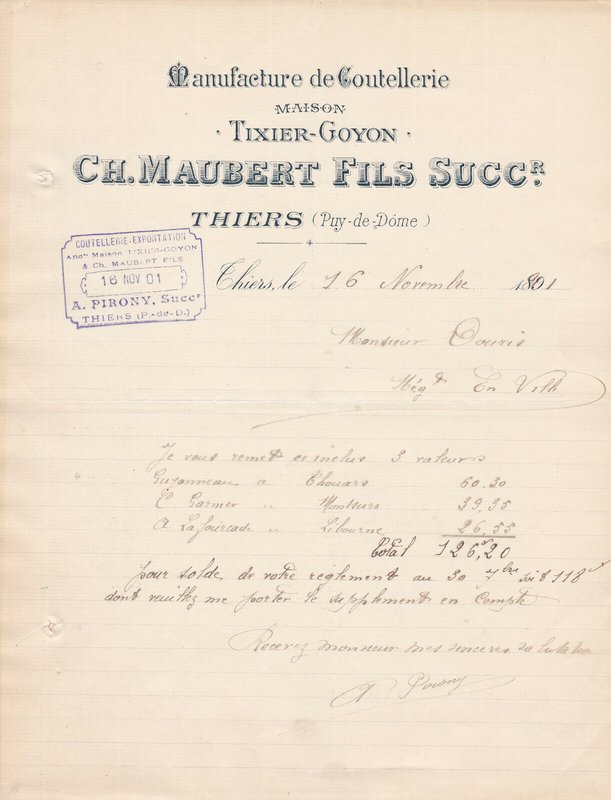 Manufacture de Coutellerie
MAISON
· TIXIER-GOYON ·
CH. MAUBERT FILS SUCCR.
THIERS (Puy-de-Dôme)
COUTELLERIE-EXPORTATION
Ancne Maison TIXIER-GOYON
& Ch. MAUBERT FILS
16 NOV 01
A. PIRONY, Succr
THIERS (P.-de-D.)
Thiers, le 16 Novembre 1901
Monsieur Douris
Négt En Ville
Je vous remet ci inclus 3 valeurs
Guyonneau a Thouars 60.30
E Garnier " Montsurs 39.35
A Lafourcade " Libourne 26.55
Total 126f,20
pour solde de votre règlement au 30 7bre soit 118f
dont veuillez me porter le supplément en compte
Recevez monsieur mes sincères salutations
A Pirony